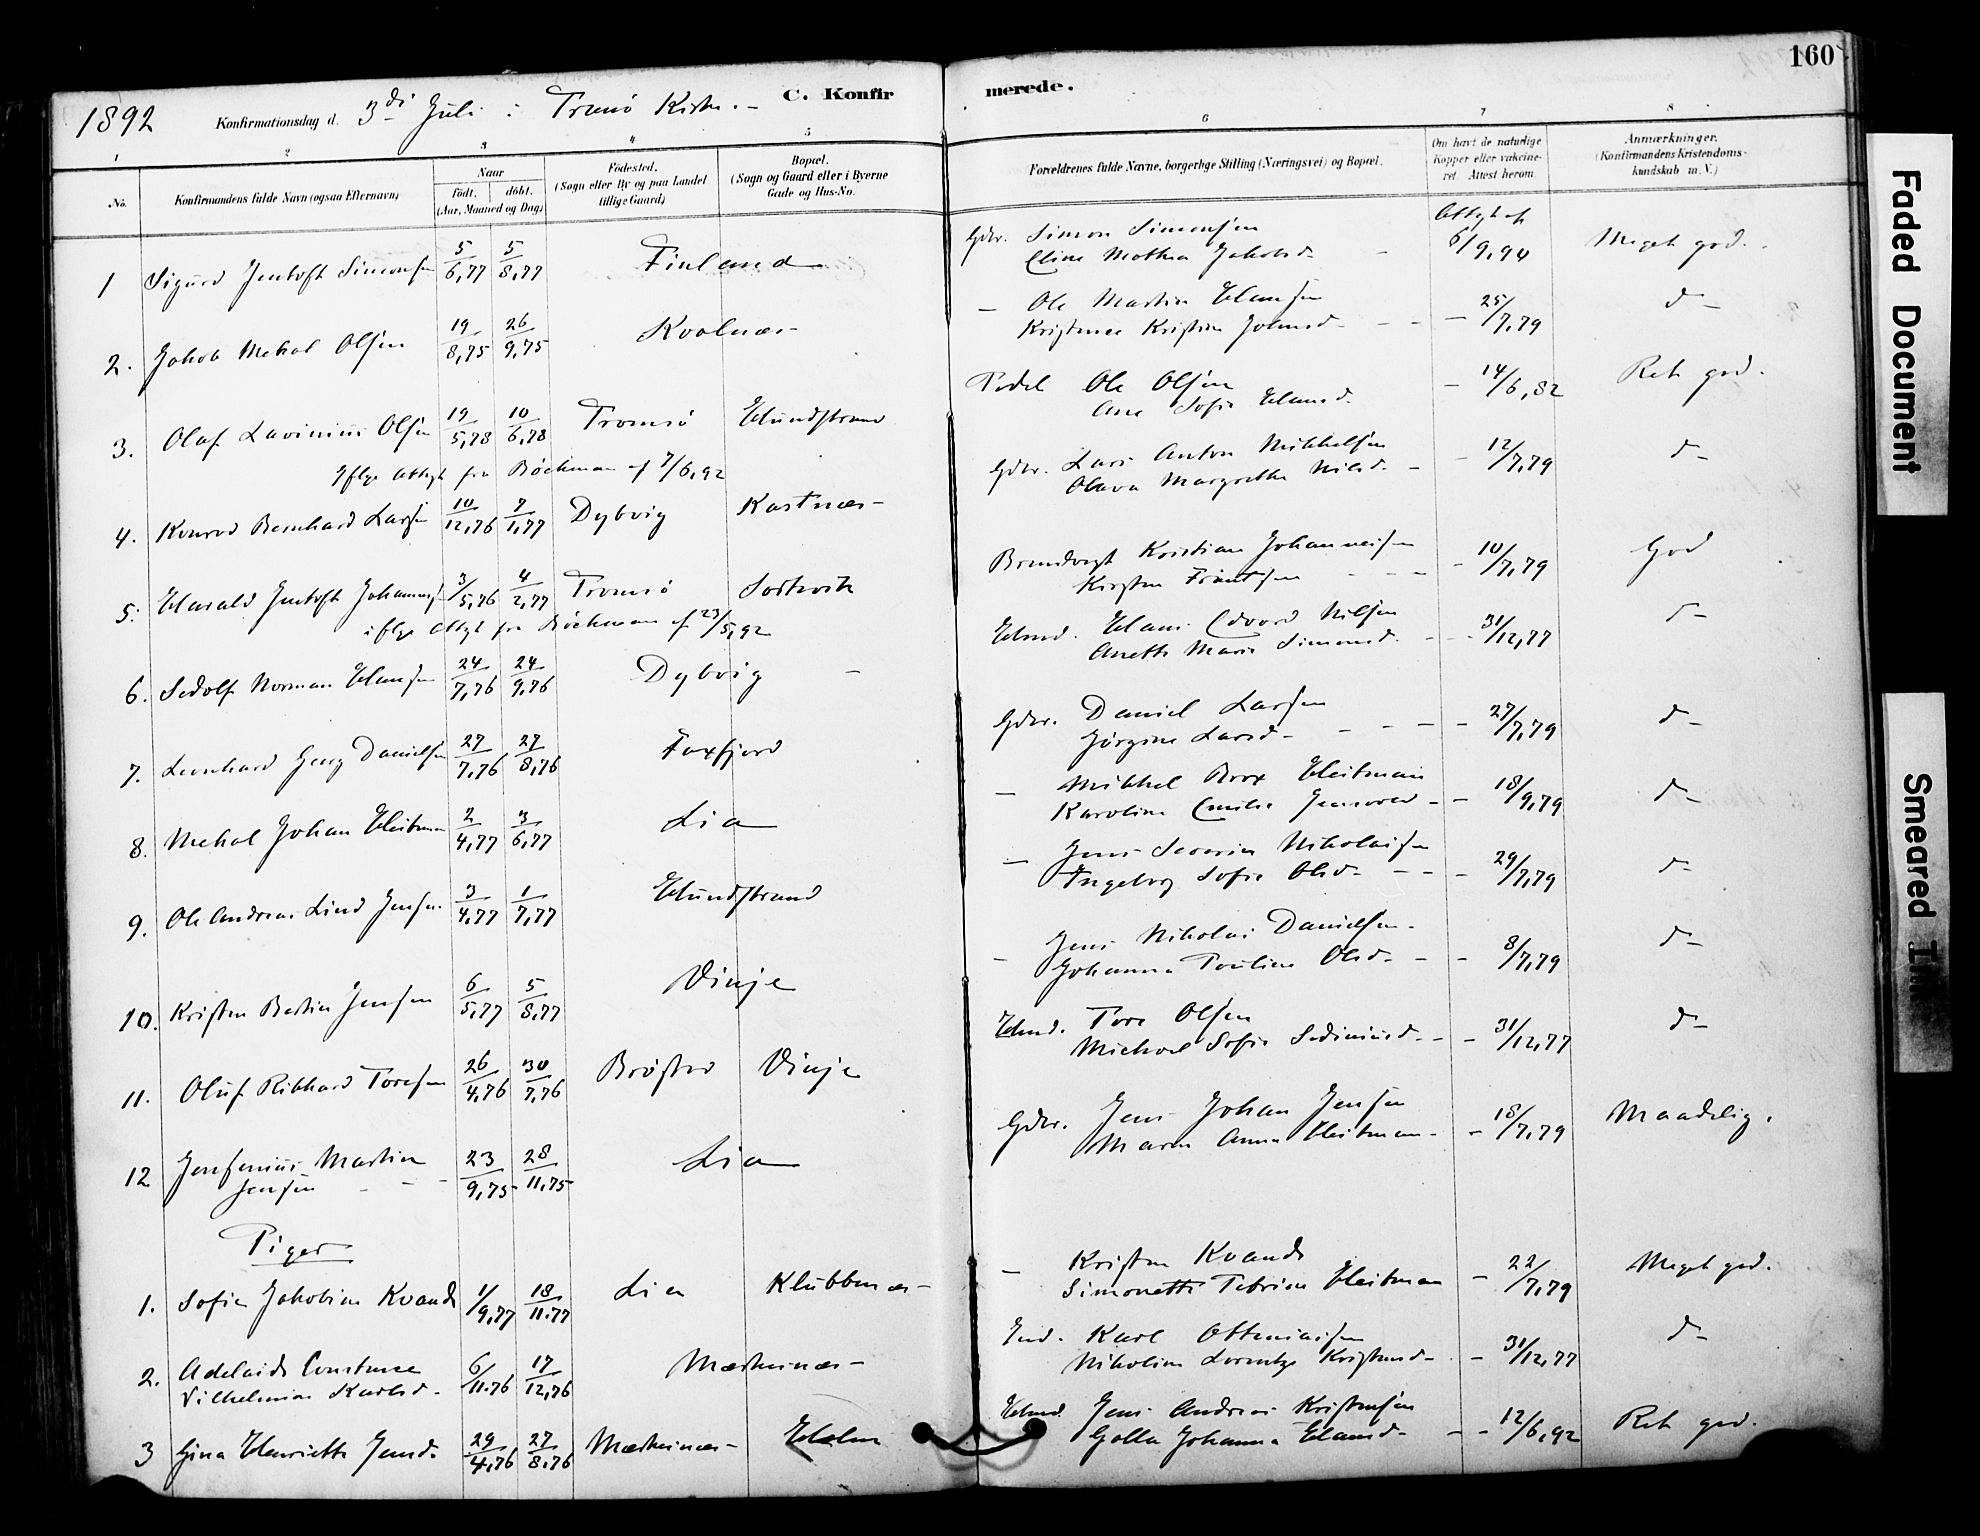 160
1892 Konfirmationsdag d. 3di Juli i Tranö Kirke. C. Konfirmerede.
1 2 3 4 5 6 7 8
No. Konfirmandens fulde Navn (ogsaa Efternavn) Naar födt. döbt. (Aar, Maaned og Dag) Födested. (Sogn eller By og paa Landet tillige Gaard) Bopæl. (Sogn og Gaard eller i Byerne Gade og Hus-No. Forældrenes fulde Navne, borgerlige Stilling (Næringsvei) og Bopæl. Om havt de naturlige Kopper eller vakcineret Attest herom. Anmærkninger. (Konfirmandens Kristendomskundskab m. V.)
1 Sigurd Jentoft Simonsen 5/6,77 5/8,77 Finland Gdbr. Simon Simonsen Attest af 6/9,94 Meget god.
Eline Mathea Jakobsd.
2. Jakob Mekal Olsen 19/8,75 26/9,75 Kvalnes - Ole Martin Hansen - 25/7,79 d-
Kristense Kristine Johnsd.
3. Olaf Lavinius Olsen 19/5,78 10/6,78 Tromsö Hundstrand Pedel Ole Olsen - 14/6,82 Ret god.
Ane Sofie Hansd.
Iflge Attest fra Böckman af 7/6,92
4. Konrad Bernhard Larsen 10/12,76 7/1,77 Dybvig Kastnes Gdbr. Lars Anton Mikkelsen - 12/7,79 d-
Olava Margrethe Nilsd.
5. Harald Jentoft Johannes 3/5,76 4/2,77 Tromsö Brandvagt Kristian Johannesen - 10/7,79 God
Kirsten Frantsen
iflge Attest fra Böckman af 23/5,92
6. Sedolf Norman Hansen 24/7,76 24/9,76 Dybvig Husmd. Hans Edvard Nilsen - 31/12,77 d-
Anette Marie Simonsd.
7. Leonhard Georg Danielsen 27/7,76 27/8,76 Faxfjord Gdbr. Daniel Larsen - 27/7,79 d-
Jörgine Larsd.
8. Mekal Johan Heitman 2/4,77 3/6,77 Lia - Mikkel Brox Heitman - 18/9,79 d-
Karoline Emilie
9. Ole Andreas Lind Jensen 3/4,77 1/7,77 Hundstrand - Jens Severin Nikolaisen - 29/7,79 d-
Ingeborg Sofie Olsd.
10. Kristen Bertin Jensen 6/5,77 5/8,77 Vinje - Jens Nikolai Danielsen - 8/7,79 d-
Johanna Pauline Olsd.
11. Oluf Rikhard Toresen 26/4,76 30/7,76 Bröstad Vinje Husmd. Tore Olsen - 31/12,77 d-
Mickael Sofie
12 Jensenius Martin 23/9,75 28/11,75 Lia Gdbr. Jens Johan Jensen - 18/7,79 Maadelig.
Jensen Maren Anna Heitman
Piger
1. Sofie Jakobine Kvande 1/9,77 18/11.77 Lia Klubbnes - Kristen Kvande - 22/7,79 Meget god.
Simonette Heitman
2. Adelaide Constanse 6/11.76 17/12,76 Mærkenes Ind. Karl Otteniasen - 31/12,77 d-
Vilhelmine Karlsd. Nikoline Lorentze Kristensd.
3 Gina Henriette Jensd. 29/4,76 27/8,76 Mærkenes Holm Husmd. Jens Andreas Kristensen - 12/6,92 Ret god.
Golla Johanna Hansd.
Faded Document
Smeared Ink